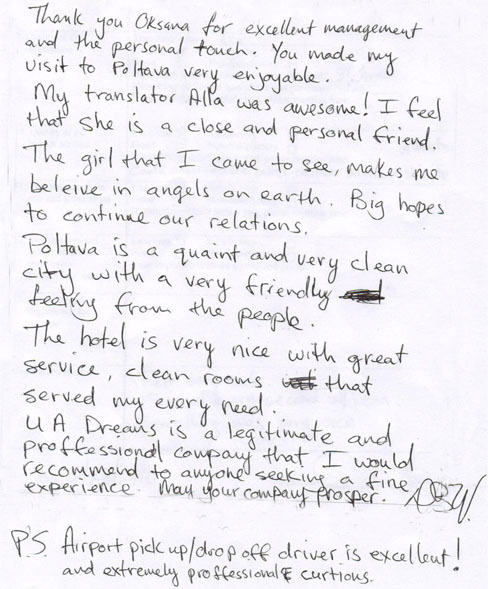 Thank you Oksana for excellent management
and the personal touch. You made my
visit to Poltava very enjoyable.
My translator Alla was awesome! I feel
that she is a close and personal friend.
The girl that I came to see, makes me
beleive in angels on earth. Big hopes
to continue our relations.
Poltava is a quaint and very clean
city with a very friendly
feeling from the people.
The hotel is very nice with great
service, clean rooms that
served my every need.
U A Dreams is a legitimate and
proffessional company that I would
recommend to anyone seeking a fine
experience. May your company prosper.
P.S. Airport pick up/drop off driver is excellent!
and extremely proffessional & curtious.